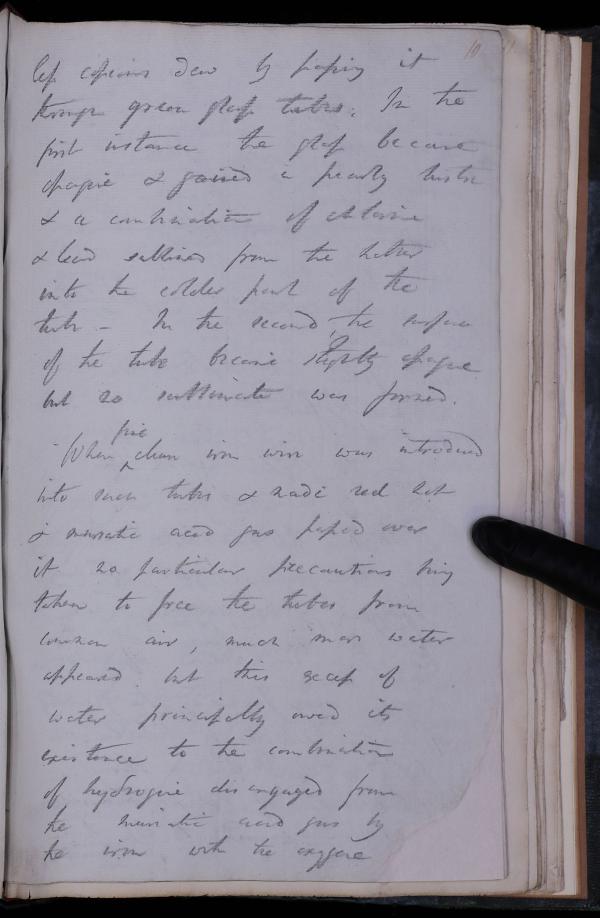 10
less copious dew by passing it
through green glass tubes. In the
first instance the glass became
opaque & gained a pearly lustre
& a combination of chlorine
& lead sublimed from the hotter
into the colder part of the
tube – In the second, the surface
of the tube became slightly opaque
but no sublimate was formed.
fine
When ^ clean iron wire was introduced
into such tubes & made red hot
& muriatic acid gas passed over
it no particular precautions being
taken to free the tubes from
common air, much more water
appeared but this excess of
water principally owed its
existence to the combination
of hydrogene disengaged from
the muriatic acid gas by
the iron with the oxygene